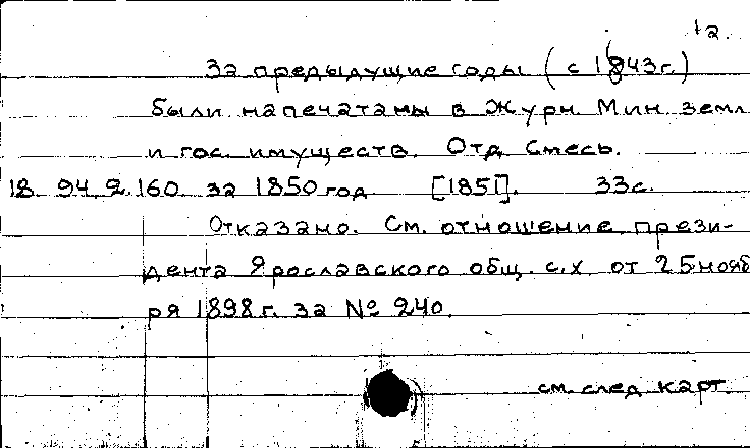 12.
За предыдущие годы (с 1843 г.)
были напечатаны в Журн. Мин. земл.
и гос. имуществ. Отд. Смесь.
18. 94. 2. 160. за 1850 год [1851]. 33 с.
Отказано. См. отношение прези-
дента Ярославского общ. с.х. от 25 нояб
ря 1898 г. за № 240.
см. след. карт.